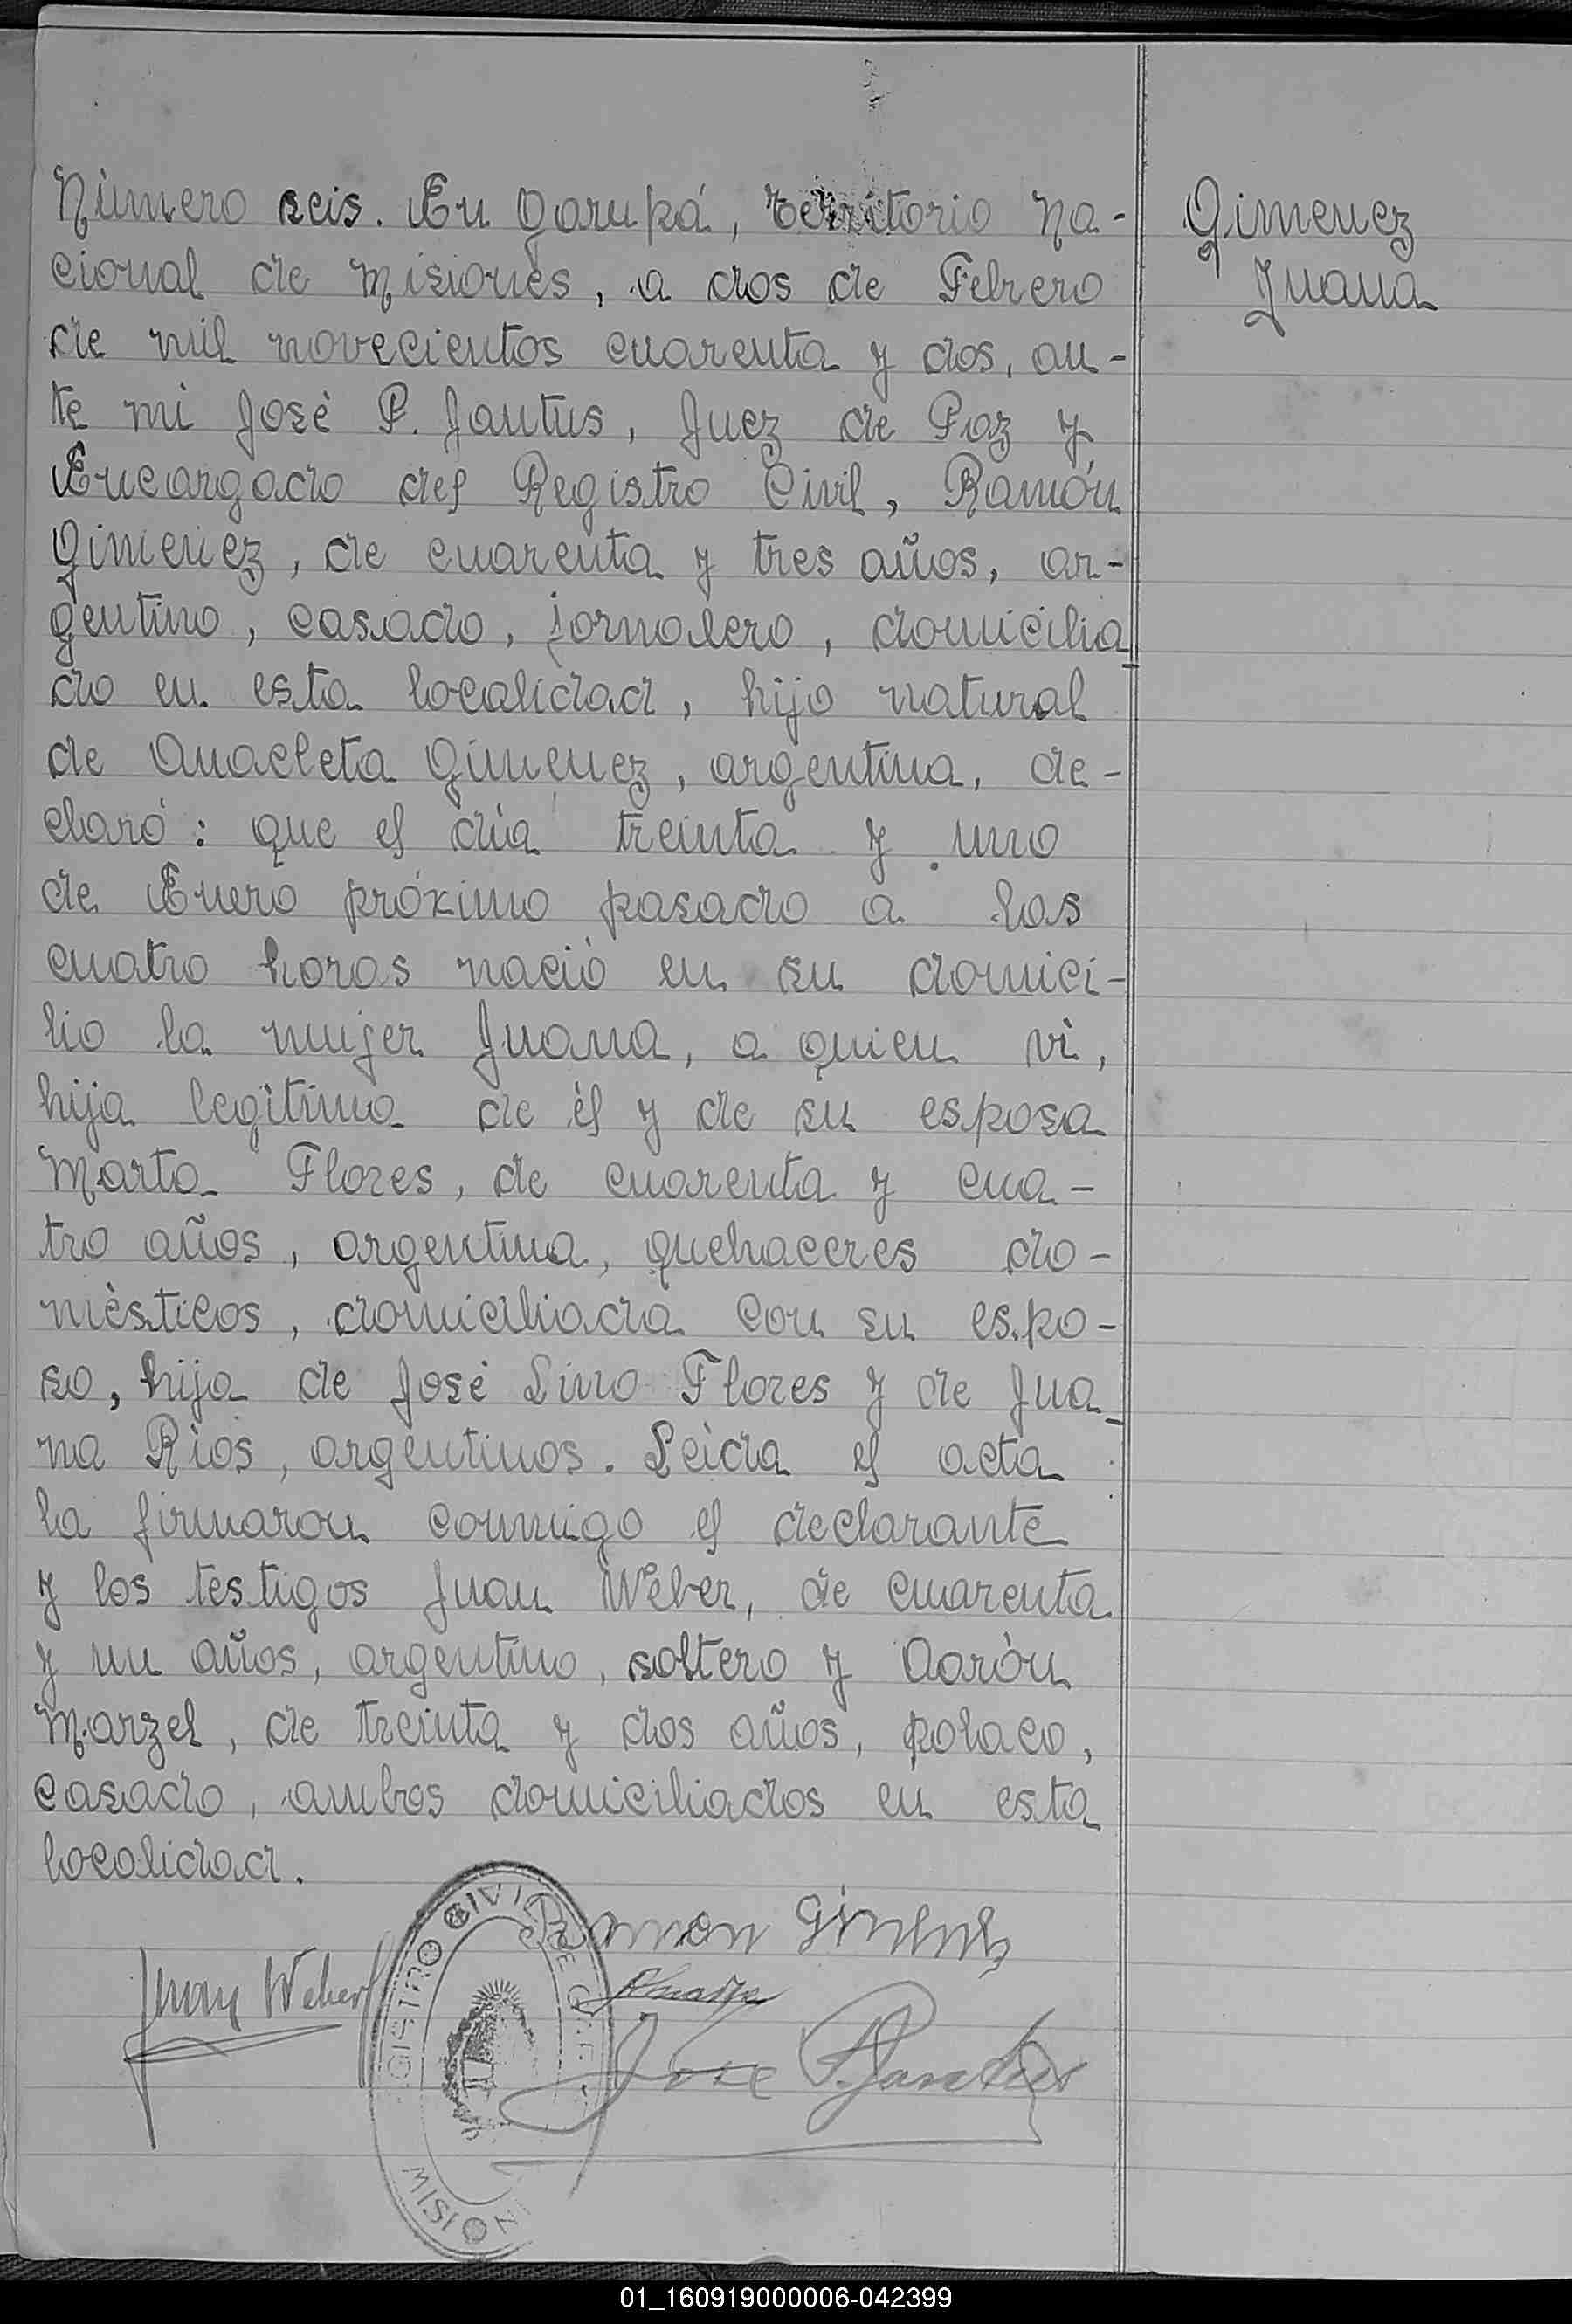 Número seis. En Garupá, territorio Na-
cional de Misiones, a dos de Febrero
de mil novecientos cuarenta y dos, an-
te mi José P. Jantus, Juez de Paz y
Encargado del Registro Civil, Ramón
Gimenez, de cuarenta y tres años, ar-
gentino, casado, jornalero, domicilia_
do en esta localidad, hijo natural
de Anacleta Gimenez, argentina, de-
claró: que el día treinta y uno
de Enero próximo pasado a las
cuatro horas nació en su domici-
lio la mujer Juana, a quien vi,
hija legítima de él y de su esposa
Marta Flores, de cuarenta y cua-
tro años, argentina, quehaceres do-
mésticos, domiciliada con su espo-
so, hija de José Lino Flores y de Jua_
na Rios, argentinos. Leida el acta
la firmaron conmigo el declarante
y los testigos Juan Weber, de cuarenta
y un años, argentino, soltero y Aarón
Marzel, de treinta y dos años, polaco,
casado, ambos domiciliados en esta
localidad.
Gimenez
Juana
Ramon Gimenez
Juan Weber
Jose P. Jantus
REGISTRO CIVIL DE
MISIONES
01_160919000006-042399